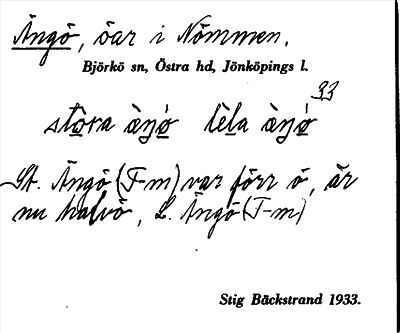 Ängö, öar i Nömmen.
Björkö sn, Östra hd, Jönköpings l.
33
stọ̀ra àŋọ́ lèla àŋọ́
St. Ängö (T-m) var förr ö, är
nu halvö, L. Ängö (T-m)
Stig Bäckstrand 1933.